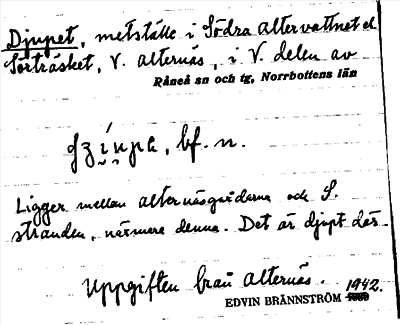 Djupet, metställe i Södra Altervattnet el
Sörträsket, V. Alternäs, i V. delen av
Råneå sn och tg, Norrbottens län
bf. n.
Ligger mellan Alternäsgårdarna och S.
stranden, närmare denna. Det är djupt där.
Uppgiften från Alternäs.
1942.
EDVIN BRÄNNSTRÖM